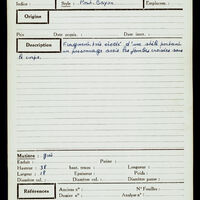 Indice : Style : Post-Bayon Emplacem. :
Origine
Prix Date acquis. : Date inscr. :
Description Fragment très érodé d'une stèle portant
un personnage assis les jambes croisées sous
le corps.
Matière : grès
Enduit : Patine :
Hauteur : 38 haut. trace : Longueur :
Largeur : 18 Epaisseur : Poids :
Diamètre col. : Diamètre panse :
Références Anciens nos : No Feuilles :
Dossier : Analyse :